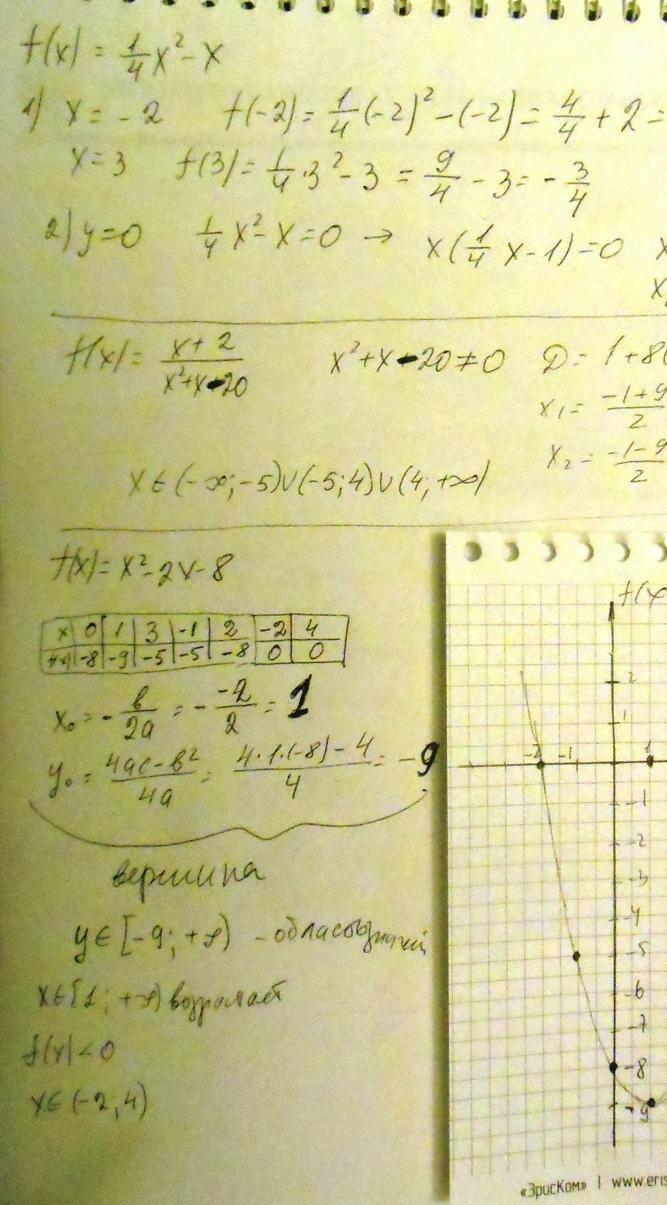 f(x) = 1/4 x² - x
1) x = -2   f(-2) = 1/4 (-2)² - (-2) = 4/4 + 2 =
x = 3   f(3) = 1/4 · 3² - 3 = 9/4 - 3 = - 3/4
2) y = 0   1/4 x² - x = 0 → x(1/4 x - 1) = 0   x
x
f(x) = (x + 2)/(x² + x - 20)   x² + x - 20 ≠ 0   D = 1 + 8
x₁ = (-1 + 9)/2
x₂ = (-1 - 9)/2
x ∈ (-∞; -5) ∪ (-5; 4) ∪ (4; +∞)
f(x) = x² - 2x - 8
x 0 1 3 -1 2 -2 4
f(x) -8 -9 -5 -5 -8 0 0
x₀ = - в/2а = - -2/2 = 1
y₀ = (4ac - в²)/4a = (4·1·(-8) - 4)/4 = -9
вершина
y ∈ [-9; +∞) - область значений
x ∈ [1; +∞) возрастает
f(x) < 0
x ∈ (-2; 4)
f(x
2
1
-2 -1 1
-1
-2
-3
-4
-5
-6
-7
-8
-9
«ЭрисКом» | www.eris